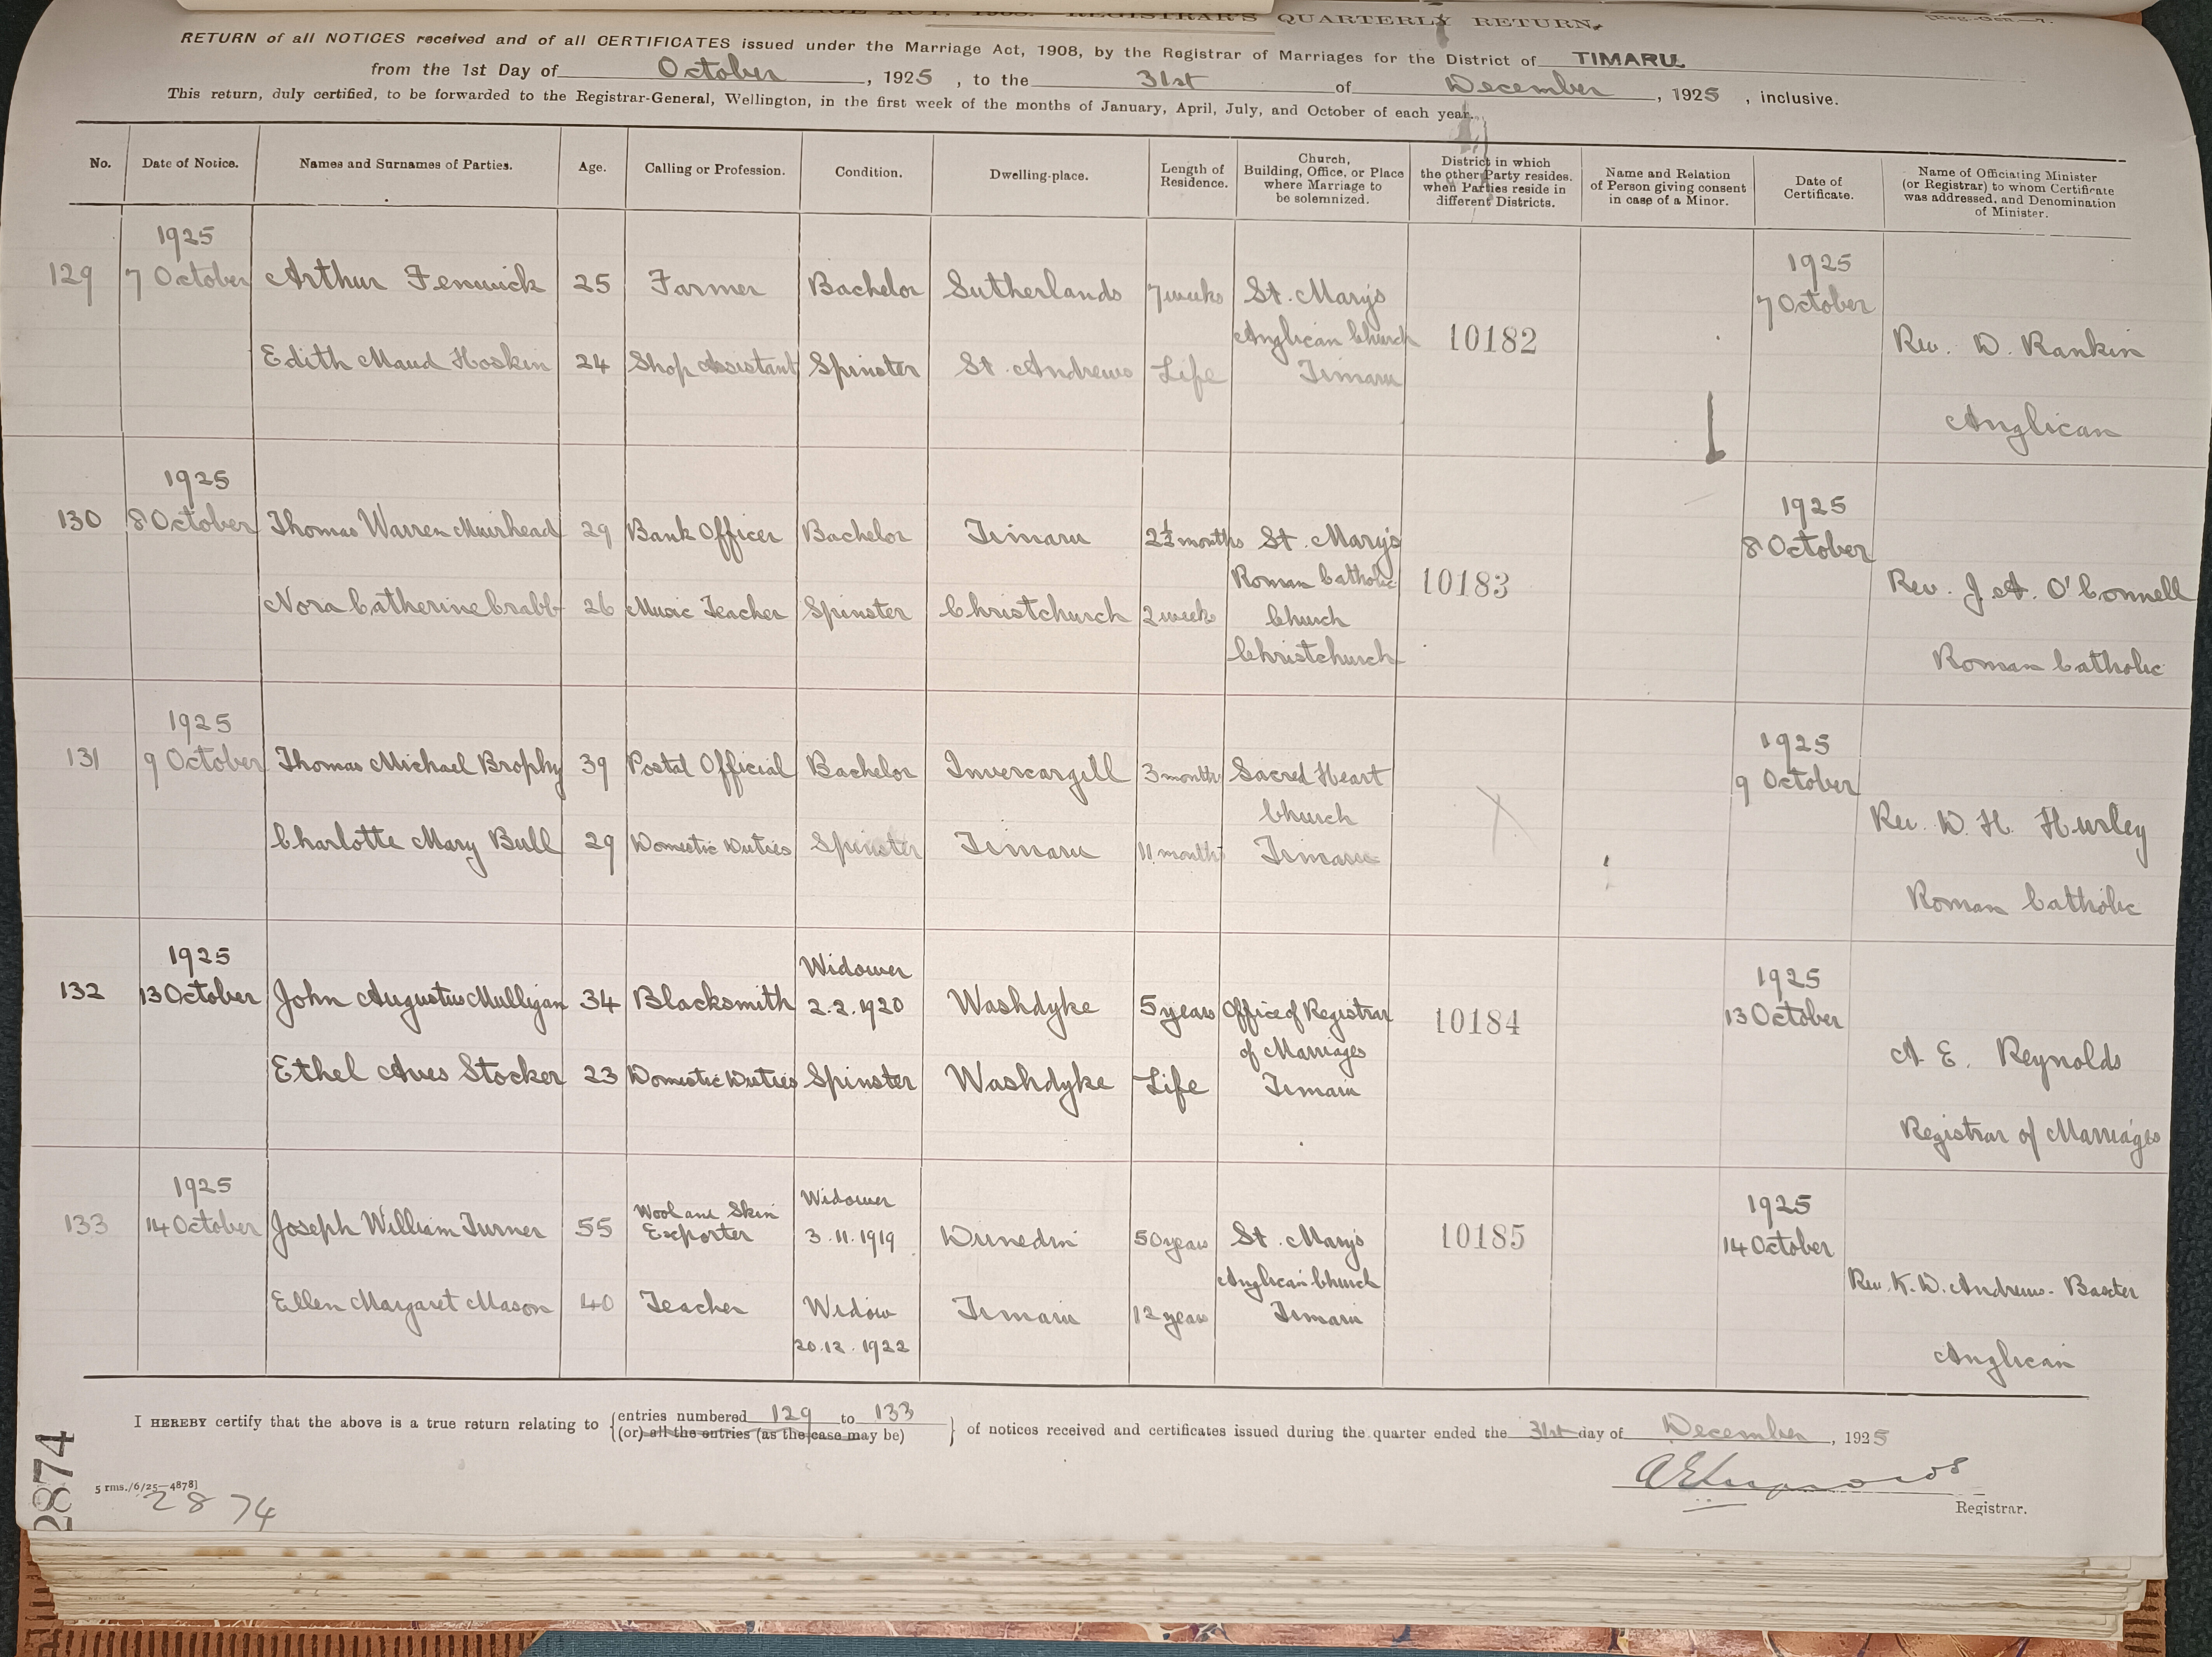 MARRIAGE ACT, 1908. REGISTRAR'S QUARTERLY RETURN.
[Reg.-Gen.—7.
RETURN of all NOTICES received and of all CERTIFICATES issued under the Marriage Act, 1908, by the Registrar of Marriages for the District of TIMARU
from the 1st Day of October, 1925, to the 31st of December, 1925, inclusive.
This return, duly certified, to be forwarded to the Registrar-General, Wellington, in the first week of the months of January, April, July, and October of each year.
No. Date of Notice. Names and Surnames of Parties. Age. Calling or Profession. Condition. Dwelling-place. Length of Residence. Church, Building, Office, or Place where Marriage to be solemnized. District in which the other Party resides, when Parties reside in different Districts. Name and Relation of Person giving consent in case of a Minor. Date of Certificate. Name of Officiating Minister (or Registrar) to whom Certificate was addressed, and Denomination of Minister.
1925 1925
129 7 October Arthur Fenwick 25 Farmer Bachelor Sutherlands 7 weeks St. Mary's 7 October
Anglican Church 10182 Rev. D. Rankin
Edith Maud Hoskin 24 Shop Assistant Spinster St. Andrews Life Timaru
Anglican
1925 1925
130 8 October Thomas Warren Muirhead 29 Bank Officer Bachelor Timaru 2½ months St. Mary's 8 October
Roman Catholic 10183 Rev. J. A. O'Connell
Nora Catherine Crabb 26 Music Teacher Spinster Christchurch 2 weeks Church
Christchurch Roman Catholic
1925 1925
131 9 October Thomas Michael Brophy 39 Postal Official Bachelor Invercargill 3 months Sacred Heart 9 October
Church Rev. D. H. Hurley
Charlotte Mary Bull 29 Domestic Duties Spinster Timaru 11 months Timaru
Roman Catholic
1925 Widower 1925
132 13 October John Augustus Mulligan 34 Blacksmith 2.2.1920 Washdyke 5 years Office of Registrar 10184 13 October
of Marriages A. E. Reynolds
Ethel Aves Stocker 23 Domestic Duties Spinster Washdyke Life Timaru
Registrar of Marriages
1925 Wool and Skin Widower 1925
133 14 October Joseph William Turner 55 Exporter 3.11.1919 Dunedin 50 years St. Marys 10185 14 October
Anglican Church Rev. K. D. Andrews-Baxter
Ellen Margaret Mason 40 Teacher Widow Timaru 12 years Timaru
20.12.1922 Anglican
I HEREBY certify that the above is a true return relating to {entries numbered 129 to 133
{(or) all the entries (as the case may be)} of notices received and certificates issued during the quarter ended the 31st day of December, 1925
AEReynolds
Registrar.
5 rms./6/25—4878]
2874
2874